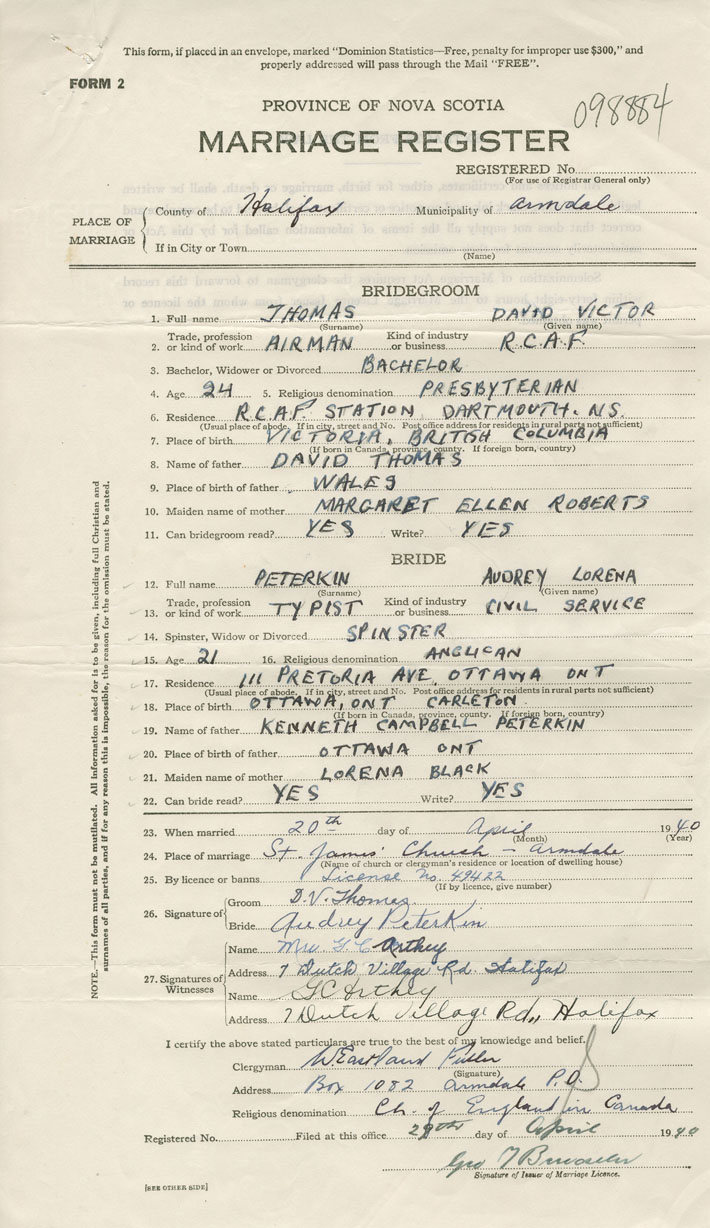 This form, if placed in an envelope, marked "Dominion Statistics—Free, penalty for improper use $300," and
properly addressed will pass through the Mail "FREE".
FORM 2
098884
PROVINCE OF NOVA SCOTIA
MARRIAGE REGISTER
REGISTERED No.
(For use of Registrar General only)
PLACE OF MARRIAGE
County of Halifax Municipality of Armdale
If in City or Town
(Name)
BRIDEGROOM
1. Full name THOMAS DAVID VICTOR
(Surname) (Given name)
2. Trade, profession or kind of work AIRMAN Kind of industry or business R.C.A.F.
3. Bachelor, Widower or Divorced BACHELOR
4. Age 24 5. Religious denomination PRESBYTERIAN
6. Residence R.C.A.F. STATION DARTMOUTH. N.S.
(Usual place of abode. If in city, street and No. Post office address for residents in rural parts not sufficient)
7. Place of birth VICTORIA, BRITISH COLUMBIA
(If born in Canada, province, county. If foreign born, country)
8. Name of father DAVID THOMAS
9. Place of birth of father WALES
10. Maiden name of mother MARGARET ELLEN ROBERTS
11. Can bridegroom read? YES Write? YES
BRIDE
12. Full name PETERKIN AUDREY LORENA
(Surname) (Given name)
13. Trade, profession or kind of work TYPIST Kind of industry or business CIVIL SERVICE
14. Spinster, Widow or Divorced SPINSTER
15. Age 21 16. Religious denomination ANGLICAN
17. Residence 111 PRETORIA AVE. OTTAWA ONT
(Usual place of abode. If in city, street and No. Post office address for residents in rural parts not sufficient)
18. Place of birth OTTAWA, ONT CARLETON
(If born in Canada, province, county. If foreign born, country)
19. Name of father KENNETH CAMPBELL PETERKIN
20. Place of birth of father OTTAWA ONT
21. Maiden name of mother LORENA BLACK
22. Can bride read? YES Write? YES
23. When married 20th day of April 1940
(Month) (Year)
24. Place of marriage St. James' Church – Armdale
(Name of church or clergyman's residence or location of dwelling house)
25. By licence or banns License No. 49422
(If by licence, give number)
26. Signature of
Groom D.V. Thomas
Bride Audrey Peterkin
27. Signatures of Witnesses
Name Mrs G C Arthey
Address 7 Dutch Village Rd. Halifax
Name G C Arthey
Address 7 Dutch Village Rd., Halifax
I certify the above stated particulars are true to the best of my knowledge and belief.
Clergyman W. Eastland Fuller
(Signature)
Address Box 1082 Armdale P.O.
Religious denomination Ch. of England in Canada
Registered No. Filed at this office 29th day of April 1940
Geo T
Signature of Issuer of Marriage Licence.
[SEE OTHER SIDE]
NOTE.—This form must not be mutilated. All information asked for is to be given, including full Christian and
surnames of all parties, and if for any reason this is impossible, the reason for the omission must be stated.